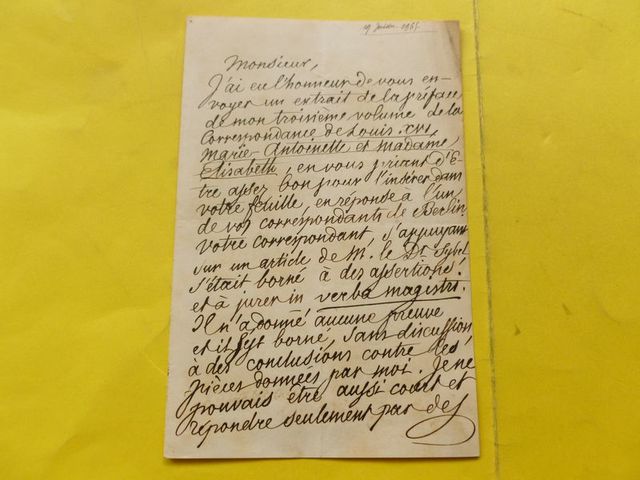 1865
Monsieur,
J'ai eu l'honneur de vous en-
voyer un extrait de la préface
de mon troisième volume de la
Correspondance de Louis XVI,
Marie-Antoinette et Madame
Elisabeth, en vous priant d'ê-
tre assez bon pour l'insérer dans
votre feuille, en réponse à l'un
de vos correspondants de Berlin.
Votre correspondant, s'appuyant
sur un article de M. le Dr. Sybel
s'était borné à des assertions
et à jurer in verba magistri.
Il n'a donné aucune preuve
et il s'est borné, sans discussion
à des conclusions contre les
pièces données par moi. Je ne
pouvais être aussi court et
répondre seulement par des